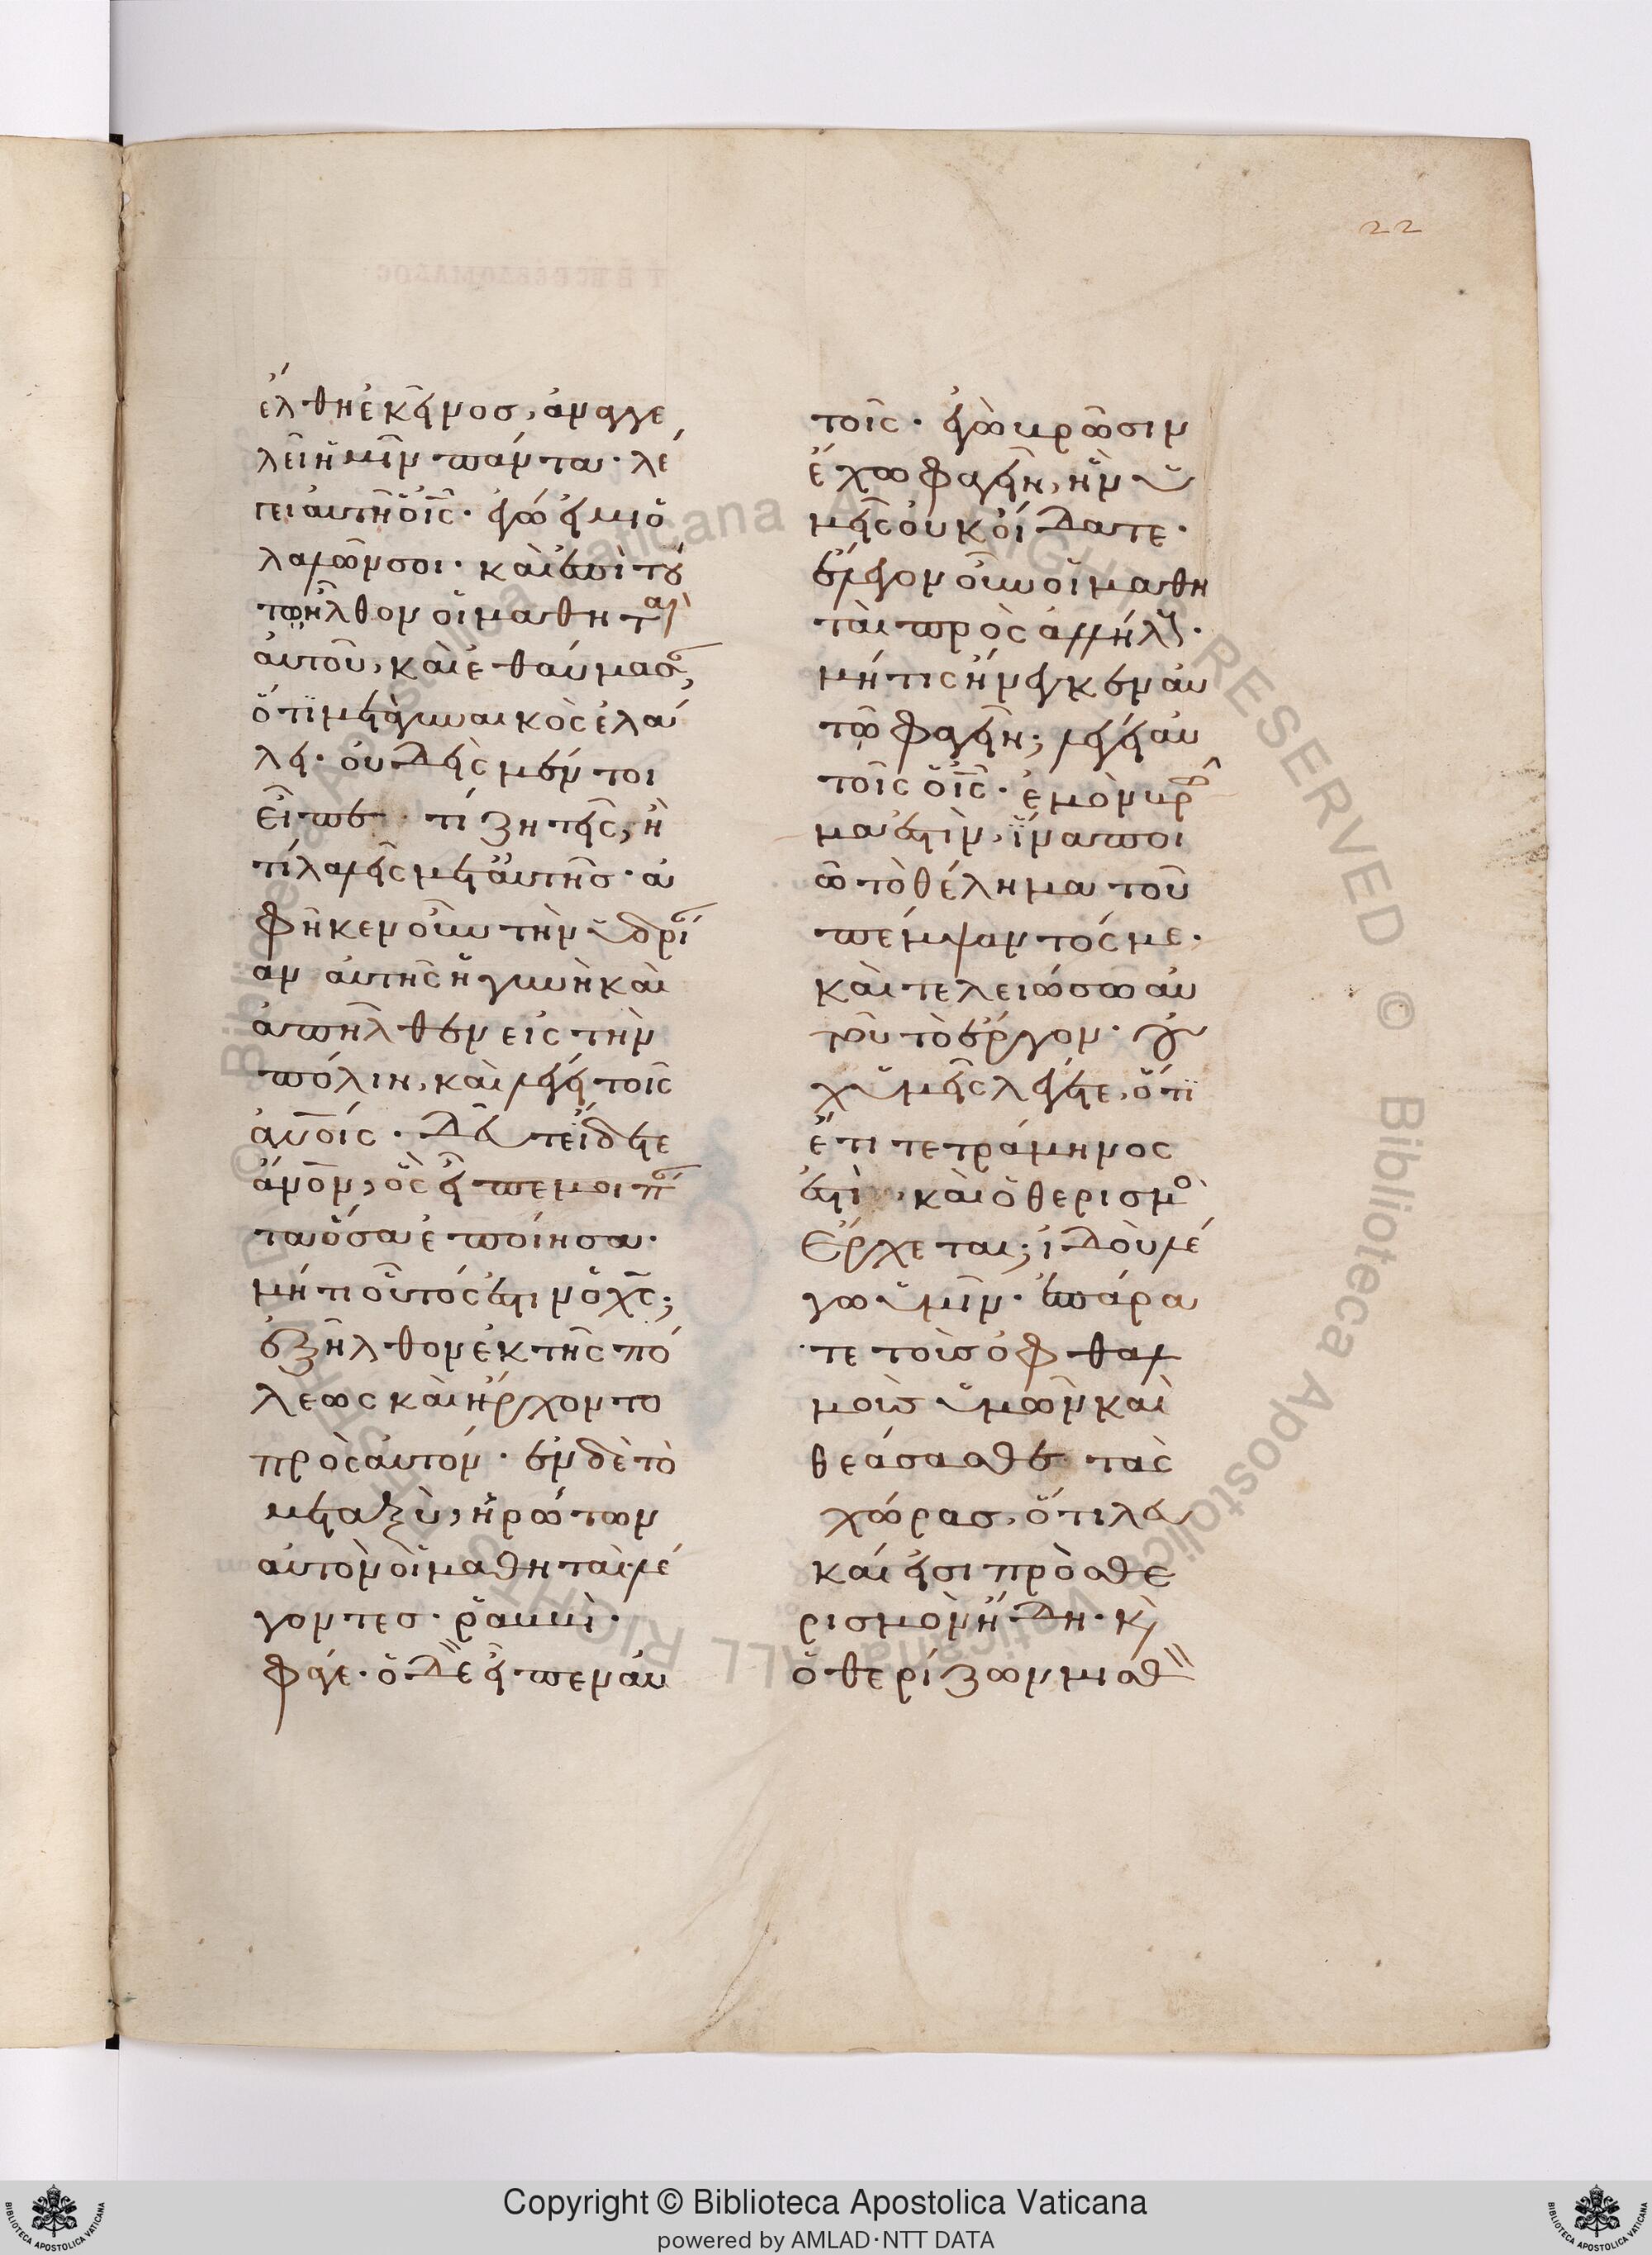 22
έλθη ἐκεῖνος, ἀναγγε
λεῖ ἡμῖν πάντα· λέ
γει αὐτῆ ὁ ις̅· ἐγώ εἰμι ὁ
λαλῶν σοι· καὶ ἐπὶ τού
τω ἦλθον οἱ μαθηταὶ
αὐτοῦ, καὶ ἐθαύμασαν,
ὅτι μετὰ γυναικὸς ἐλά
λει· οὐδεὶς μέντοι
εἶπε τί ζητεῖς, ἢ
τί λαλεῖς μετ' αὐτῆς· ἀ
φῆκεν οὖν τὴν ὑδρί
αν αὐτῆς ἡ γυνὴ καὶ
ἀπῆλθεν εἰς τὴν
πόλιν, καὶ λέγει τοῖς
αν̅οις· δεῦτε ἴδετε
αν̅ον, ὃς εἶπε μοι πάν
τα ὅσα ἐποίησα·
μήτι οὗτός ἐστιν ὁ χς̅;
ἐξῆλθον ἐκ τῆς πό
λεως καὶ ἤρχοντο
πρὸς αὐτόν· ἐν δὲ τὸ
μεταξὺ, ἠρώτων
αὐτὸν οἱ μαθηταὶ λέ
γοντες· ῥαββὶ·
φάγε· ὁ δὲ εἶπεν αὐ
τοῖς· ἐγὼ βρῶσιν
ἔχω φαγεῖν, ἣν ὑ
μεῖς οὐκ οἴδατε·
ἔλεγον οὖν οἱ μαθη
ταὶ πρὸς ἀλλήλους·
μή τις ἤνεγκεν αὐ
τῶ φαγεῖν; λέγει αὐ
τοῖς ὁ ις̅· ἐμὸν βρῶ
μα ἐστὶν, ἵνα ποι
ῶ τὸ θέλημα τοῦ
πέμψαντός με·
καὶ τελειώσω αὐ
τοῦ τὸ ἔργον· οὐ
χ ὑμεῖς λέγετε, ὅτι
ἔτι τετράμηνος
ἐστὶ, καὶ ὁ θερισμὸς
ἔρχεται; ἰδοὺ λέ
γω ὑμῖν· ἐπάρα
τε τοὺς ὀφθαλ
μοὺς ὑμῶν καὶ
θεάσασθε τὰς
χώρας, ὅτι λευ
καί εἰσι πρὸς θε
ρισμὸν ἤδη· κὶ
ὁ θερίζων μισθὸν
Copyright © Biblioteca Apostolica Vaticana
powered by AMLAD·NTT DATA